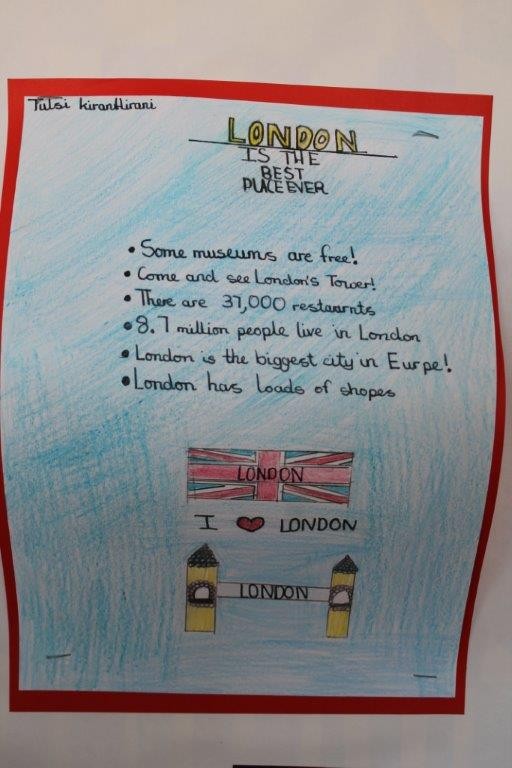 Tulsi kiran Hirani
LONDON
IS THE
BEST
PLACE EVER
• Some museums are free!
• Come and see London's Tower!
• There are 37,000 restaurnts
• 8.7 million people live in London
• London is the biggest city in Eurpe!
• London has loads of shopes
LONDON
I ❤ LONDON
LONDON